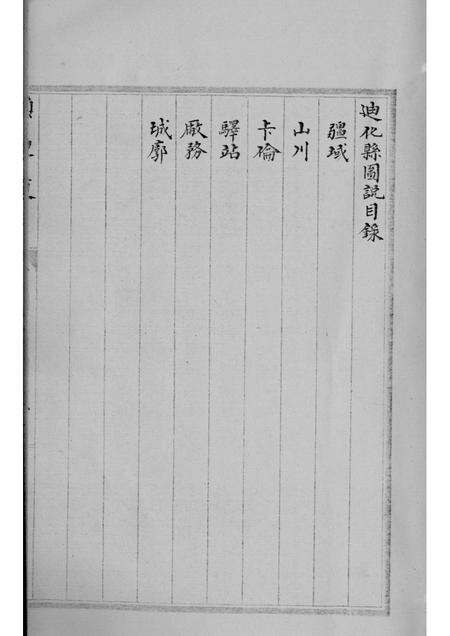 迪化縣圖說目錄
疆域
山川
卡倫
驛站
廠務
城廓